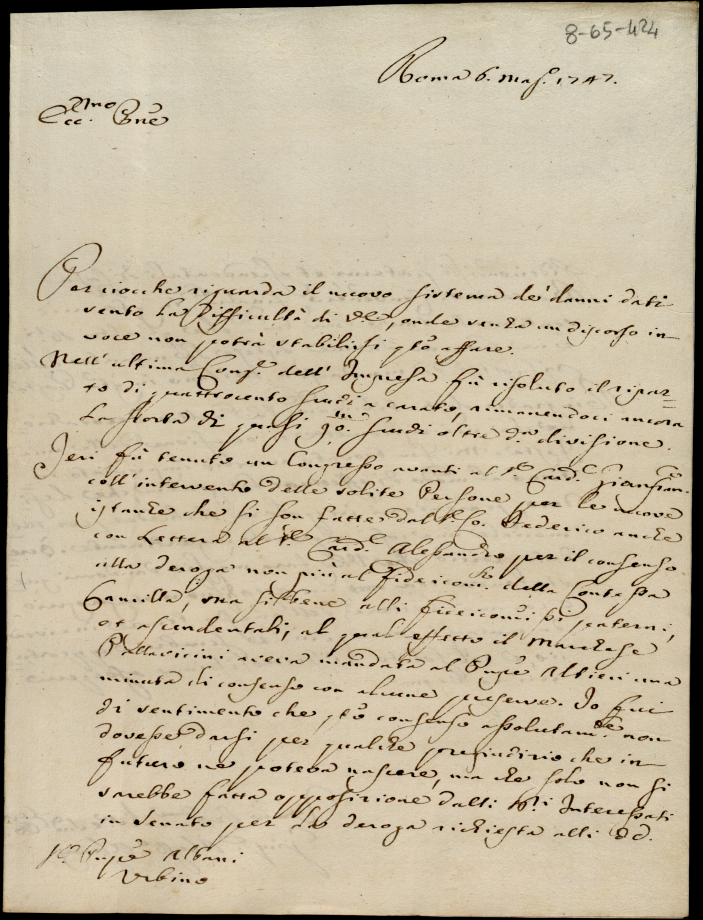 8-65-424
Roma 6. Mag.o 1747.
Ecc.mo Pñe
Per ciocche riguarda il nuovo sistema de' danni dati
sento la difficultà di V.E., onde senza un discorso in
voce non potrà stabilirsi q̃to affare.
Nell' ultima Cong.e dell' Impresa fù risoluto il ripar=
to di quattrocento scudi a carato, rimanendoci ancora
la scorta di quasi scudi oltre d.a divisione.
Jeri fù tenuto un Congresso avanti al S.r Card.l
coll' intervento delle solite Persone per le nuove
istanze che si son fatte dal S. D. Federico anche
con Lettera al S.r Card.l Alessandro per il consenso
alla deroga non più al fideicom.so della Contessa
Camilla, ma si bene alli fideicom̃i paterni,
et ascendentali, al qual effetto il Marchese
Pallavicini aveva mandata al Altieri una
minuta di consenso con alcune riserve. Io fui
di sentimento che q̃to consenso assolutam.te non
dovesse darsi per qualche pregiudizio che in
futuro ne poteva nascere, ma che solo non si
sarebbe fatta opposizione dalli S.ri Interessati
in Senato per la deroga richiesta alli dd.
Albani
Urbino